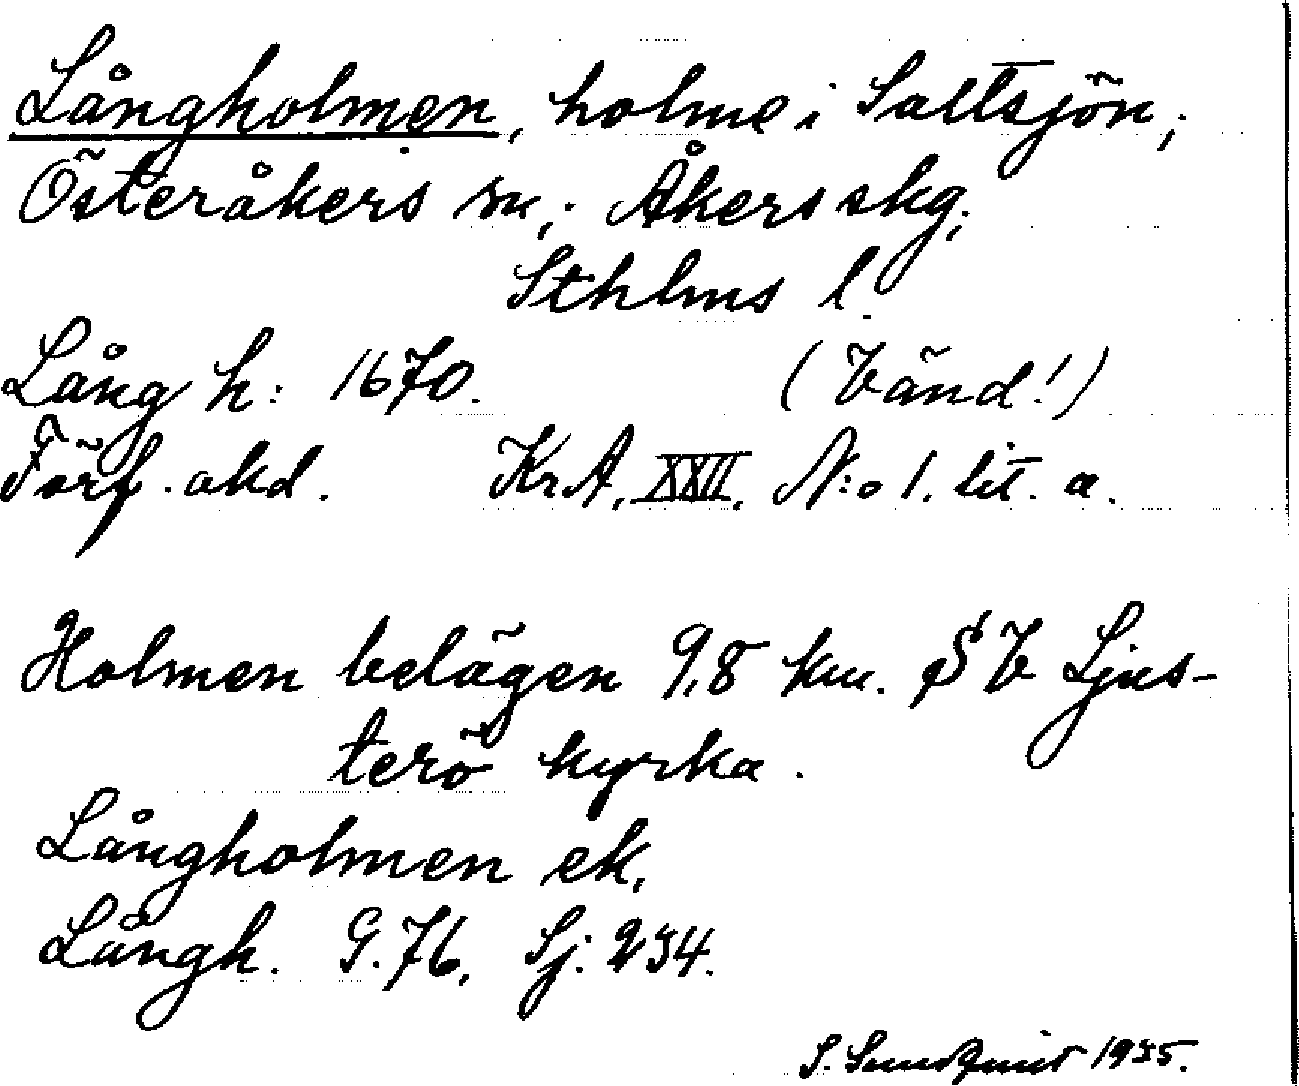 Långholmen, holme i Saltsjön,
Österåkers sn, Åkers skg,
Sthlms l.
Lång h: 1670. (Vänd!)
Förf. akd. KrA, XXII, N:o 1. lit. a.
Holmen belägen 9,8 km. SV Ljus-
terö kyrka.
Långholmen ek,
Långh. G. 76, Sj: 234.
S. Sundquist 1935.